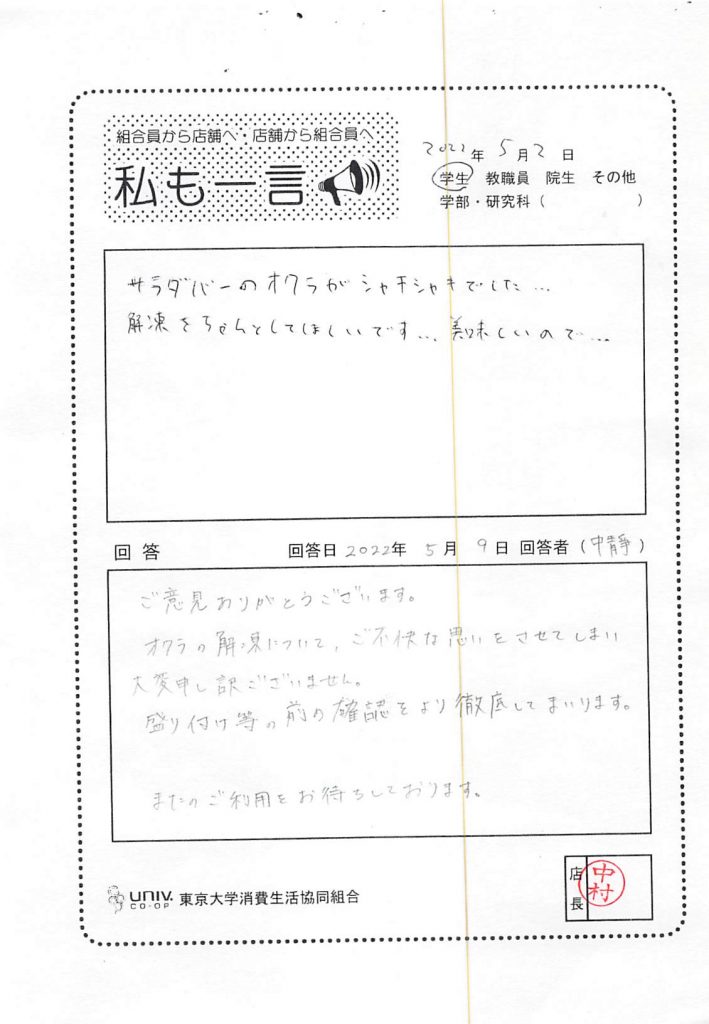 組合員から店舗へ・店舗から組合員へ
私も一言
2022年 5月2日
学生 教職員 院生 その他
学部・研究科( )
サラダバーのオクラがシャキシャキでした...
解凍をちゃんとしてほしいです... 美味しいので...
回答 回答日 2022年 5月 9日 回答者(中静)
ご意見ありがとうございます。
オクラの解凍について、ご不快な思いをさせてしまい
大変申し訳ございません。
盛り付け等の前の確認をより徹底してまいります。
またのご利用をお待ちしております。
UNIV. CO-OP 東京大学消費生活協同組合
店長 中村